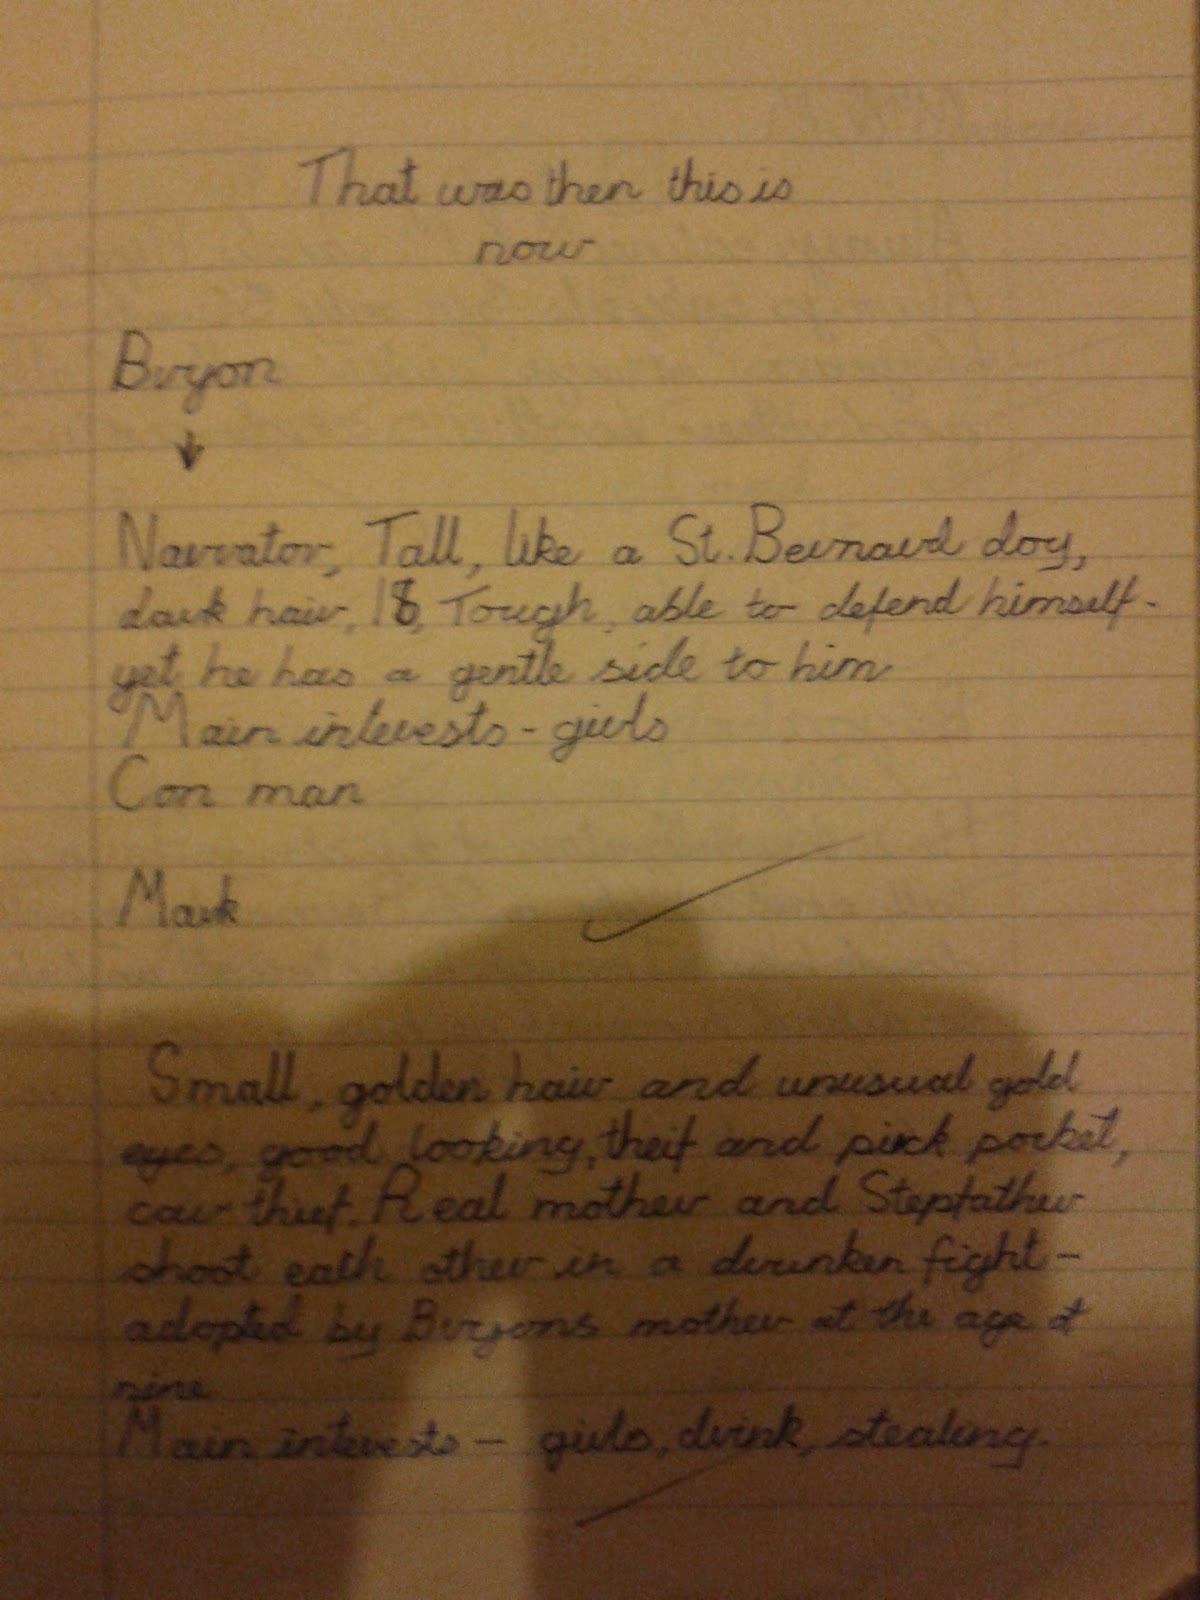 That was then this is
now
Bryon
↓
Narrator, Tall, like a St. Bernard dog,
dark hair, 18, Tough, able to defend himself -
yet he has a gentle side to him
Main interests - girls
Con man
Mark
Small, golden hair and unusual gold
eyes, good looking, theif and pick pocket,
car thief. Real mother and Stepfather
shoot each other in a drunken fight -
adopted by Bryons mother at the age of
nine
Main interests - girls, drink, stealing.